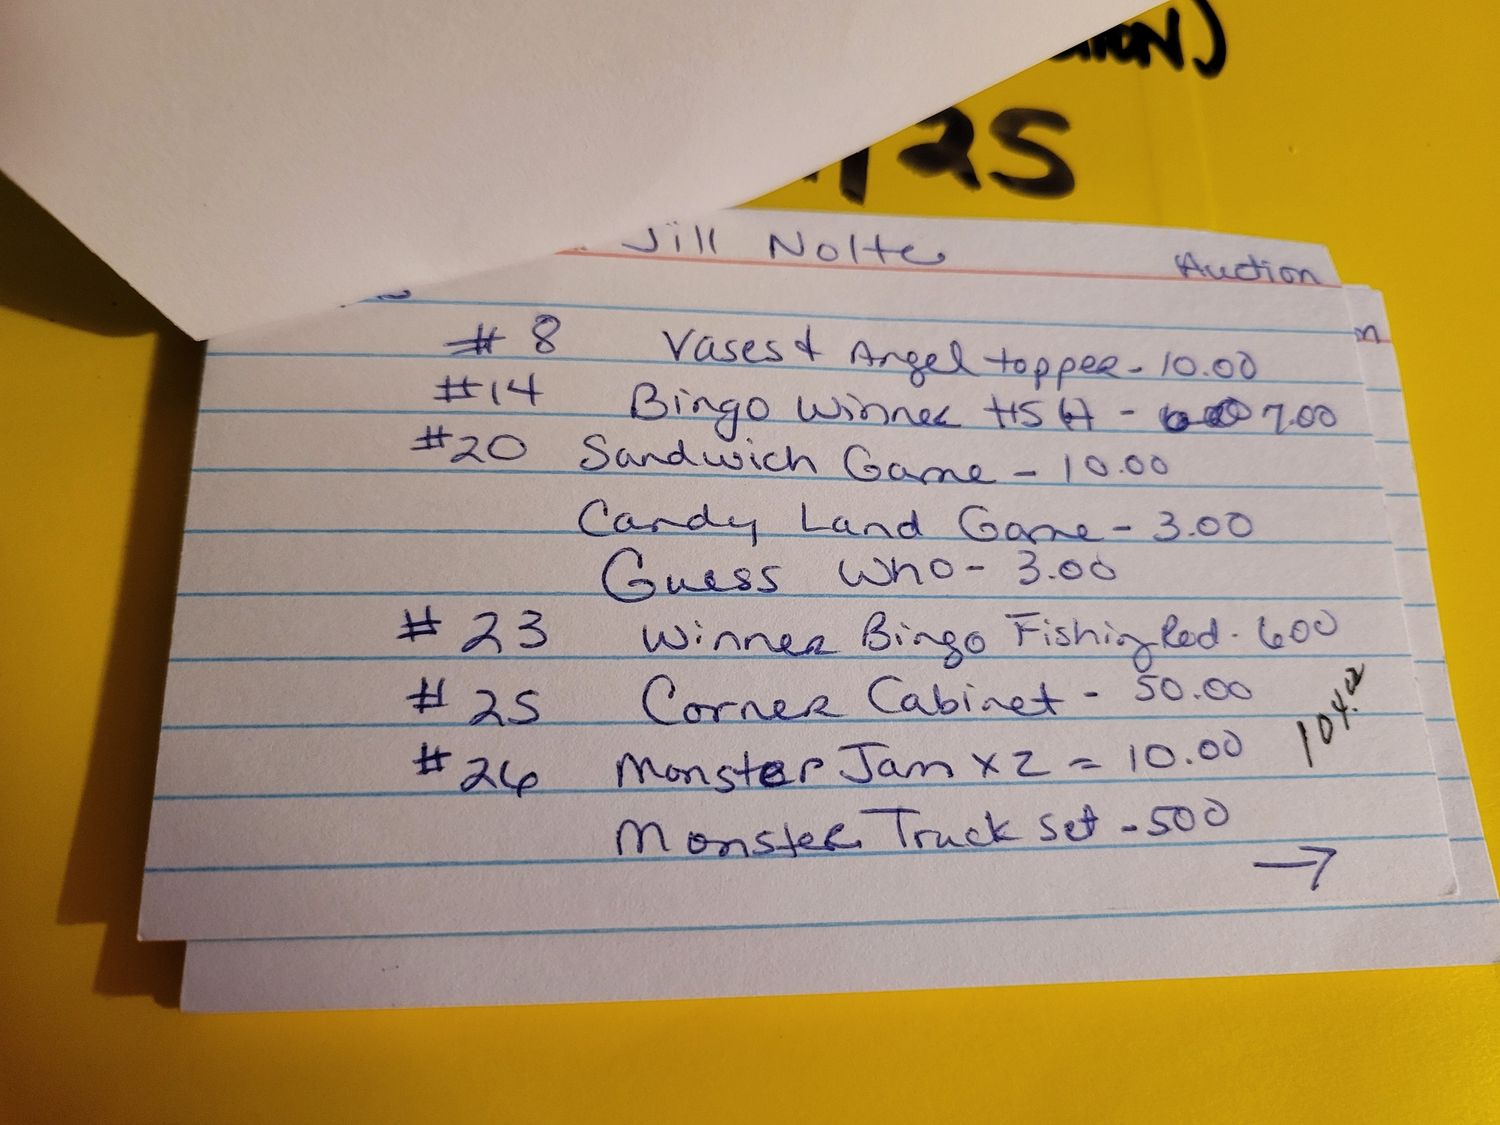 /25
Jill Nolte Auction
#8 Vases & Angel topper - 10.00
#14 Bingo Winner HSH - 7.00
#20 Sandwich Game - 10.00
Candy Land Game - 3.00
Guess Who - 3.00
#23 Winner Bingo Fishing Rod - 600
#25 Corner Cabinet - 50.00
#26 Monster Jam x 2 = 10.00
104.00
Monster Truck set - 500
→